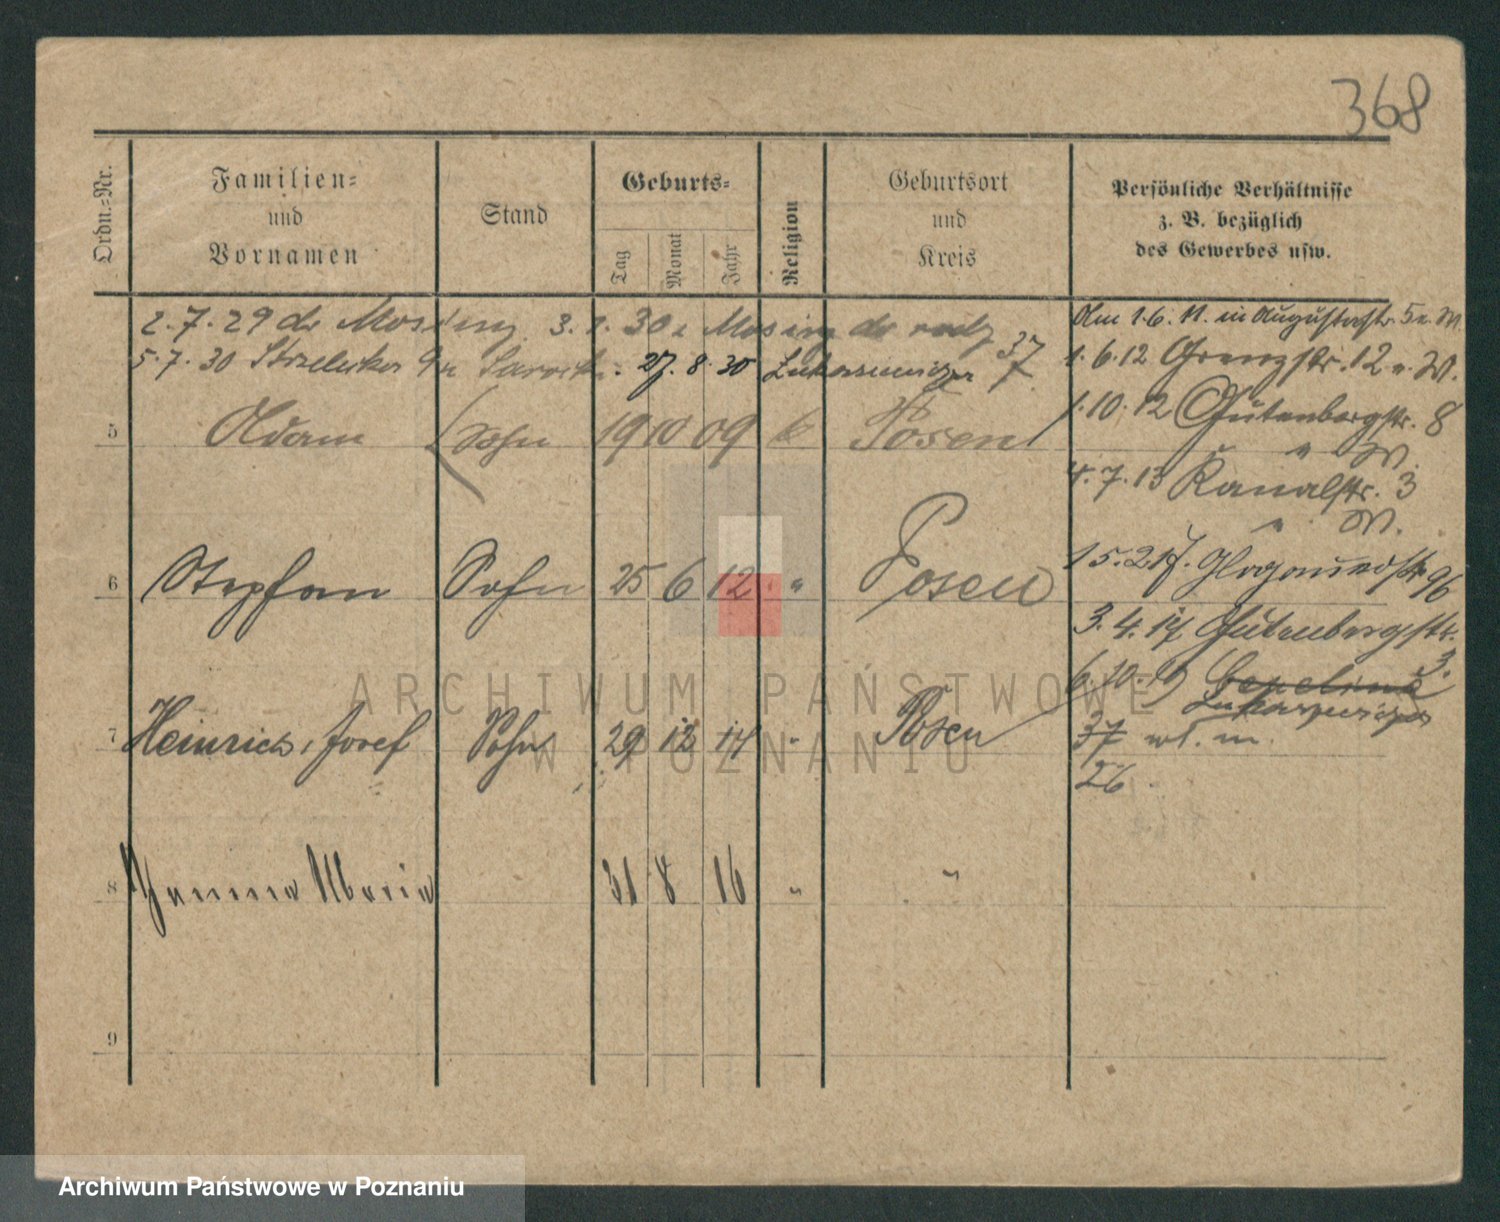 368
Ordn.-Nr.
Familien-
und
Vornamen
Stand
Geburts-
Tag
Monat
Jahr
Religion
Geburtsort
und
Kreis
Persönliche Verhältnisse
z. B. bezüglich
des Gewerbes usw.
2.7.29 do Mosiny 3.1.30 z Mosiny do
5.7.30 27.8.30 37
5 Adam Sohn 19 10 09 k Posen
6 Stephan Sohn 25 6 12 " Posen
7 Heinrich, Josef Sohn 29 12 14 " Posen
8 Hanna Maria 31 8 16 " "
9
Am 1.6.11. in Augustastr. 5 n. W.
1.6.12 Grenzstr. 12 n. W.
1.10.12 Gutenbergstr. 8
" W.
4.7.13 Kanalstr. 3
" W.
15.2.17. Glogauerstr 96
3.4.17 Gutenbergstr.
3.
6.10.19
37 wl. m.
26
ARCHIWUM PAŃSTWOWE
W POZNANIU
Archiwum Państwowe w Poznaniu